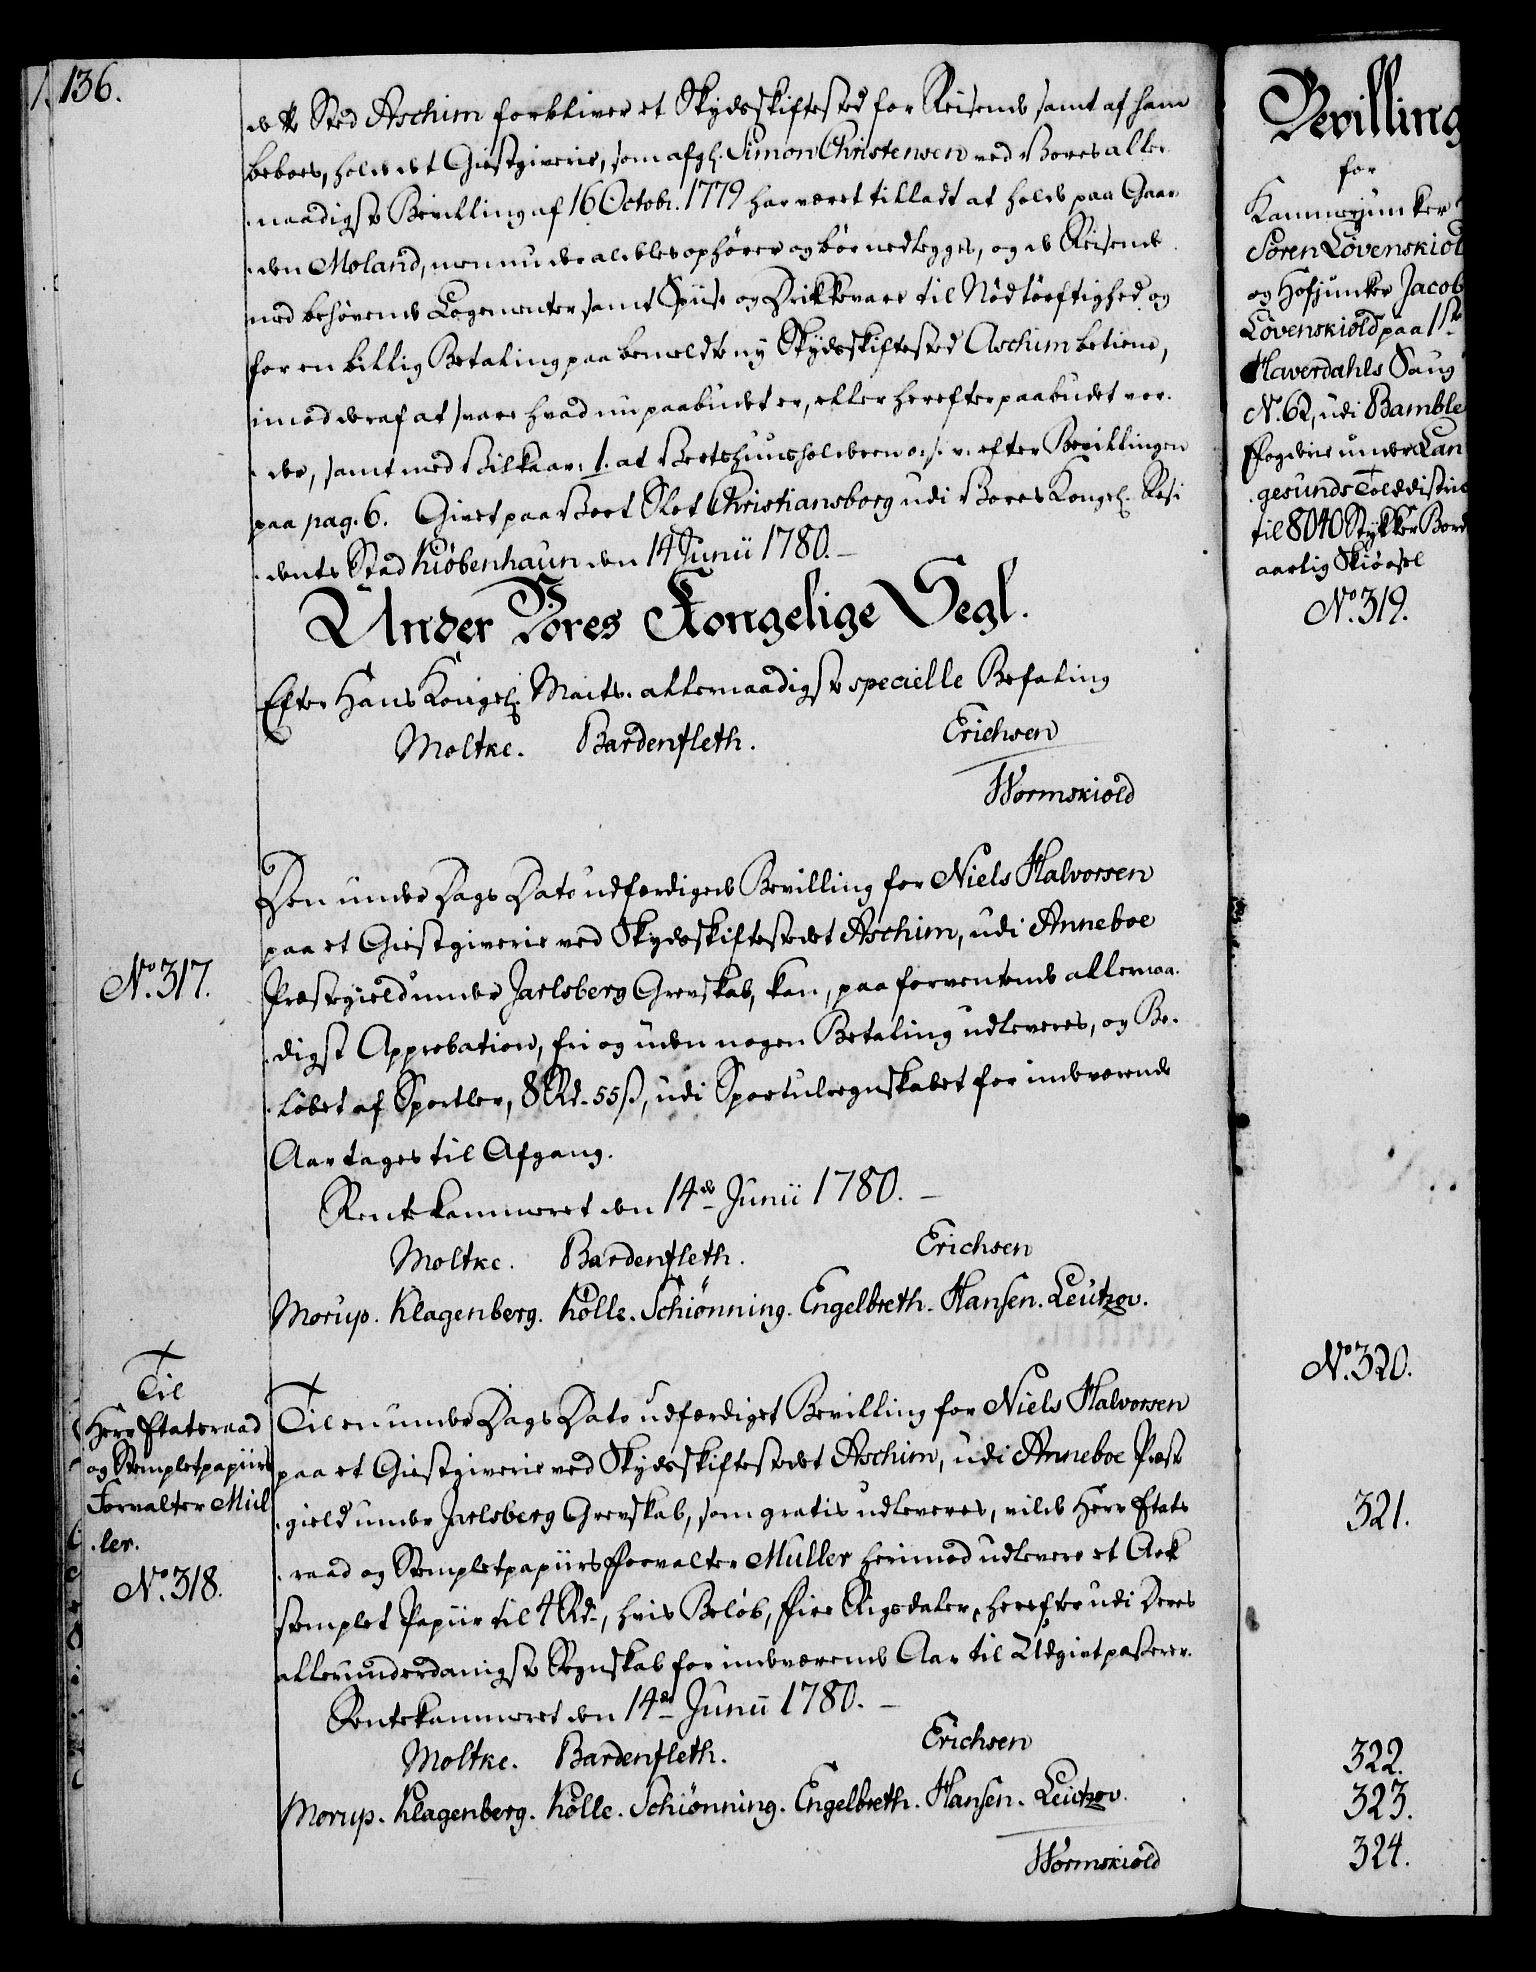 136.
dette Sted Aschim forbliver et Skydsskiftested for Reisende samt af ham
beboes, holde det Giestgiverie, som afg. Simon Christensen ved Vores aller
naadigste Bevilling af 16 Octobr. 1779 har været tilladt at holde paa Gaar
den Moland, men nu dealdeles ophører og bør nedlegges, og de Reisende
med behøvende Logementer samt Spiise og Drikkevare til Nødtørftighed og
for en billig Betaling paa bemeldte ny Skydsskiftested Aschim betiene,
imod deraf at svare hvad nu paabudet er, eller herefter paabudet vor-
de, samt med Vilkaar: 1. at Vertshuusholderen o: s: v: efter Bevillingen
paa pag. 6. Givet paa Vort Slot Christiansborg udi Vores Kongel. Resi
dents Stad Kiöbenhaun den 14 Junii 1780. –
Under Vores Kongelige Segl.
Efter Hans Kongel. Maits. allernaadigste specielle Befaling
Moltke. Bardenfleth. Erichsen
Wormskiold
Den under Dags Dato udfærdigede Bevilling for Niels Halvorsen
paa et Giestgiverie ved Skydsskiftestedet Aschim, udi Anneboe
No. 317.
Præstegield under Jarlsberg Grevskab, kan, paa forventende allernaa-
digst Approbation, fri og uden nogen Betaling udleveres, og Be-
løbet af Sportler, 8 Rd. 55 s, udi Sportulregnskabet for indeværende
Aar tages til Afgang.
Rentekammeret den 14de Junii 1780. –
Moltke. Bardenfleth. Erichsen
Morup. Klagenberg. Kölle. Schiönning. Engelbreth. Hansen. Leutzov.
Til
Herr Etatsraad
og Stempletpapiirs
Forvalter Mül
ler.
No. 318.
Til en under Dags Dato udfærdiget Bevilling for Niels Halvorsen
paa et Giestgiverie ved Skydsskiftestedet Aschim, udi Anneboe Præste
gield under Jarlsberg Grevskab, som gratis udleveres, vilde Herr Etats
raad og Stempletpapiirs Forvalter Müller herimod udlevere et Ark
stemplet Papiir til 4 Rd., hvis Beløb, fire Rigsdaler, herefter udi Deres
allerunderdanigste Regnskab for indeværende Aar til Udgivt paßerer.
Rentekammeret den 14de Junii 1780. –
Moltke. Bardenfleth. Erichsen
Morup. Klagenberg. Kölle. Schiönning. Engelbreth. Hansen. Leützov.
Wormskiold
Bevilling
for
Kammerjunker
Sören Lövenskiol
og Hofjunker Jacob
Lövenskiold paa 1ste
Haverdahls Saug
No. 62, udi Bamble
Fogderie under Lan
gesunds Tolddistric
til 8040 Stykker Bord
aarlig Skiørsel
No. 319.
No. 320.
321.
322.
323.
324.